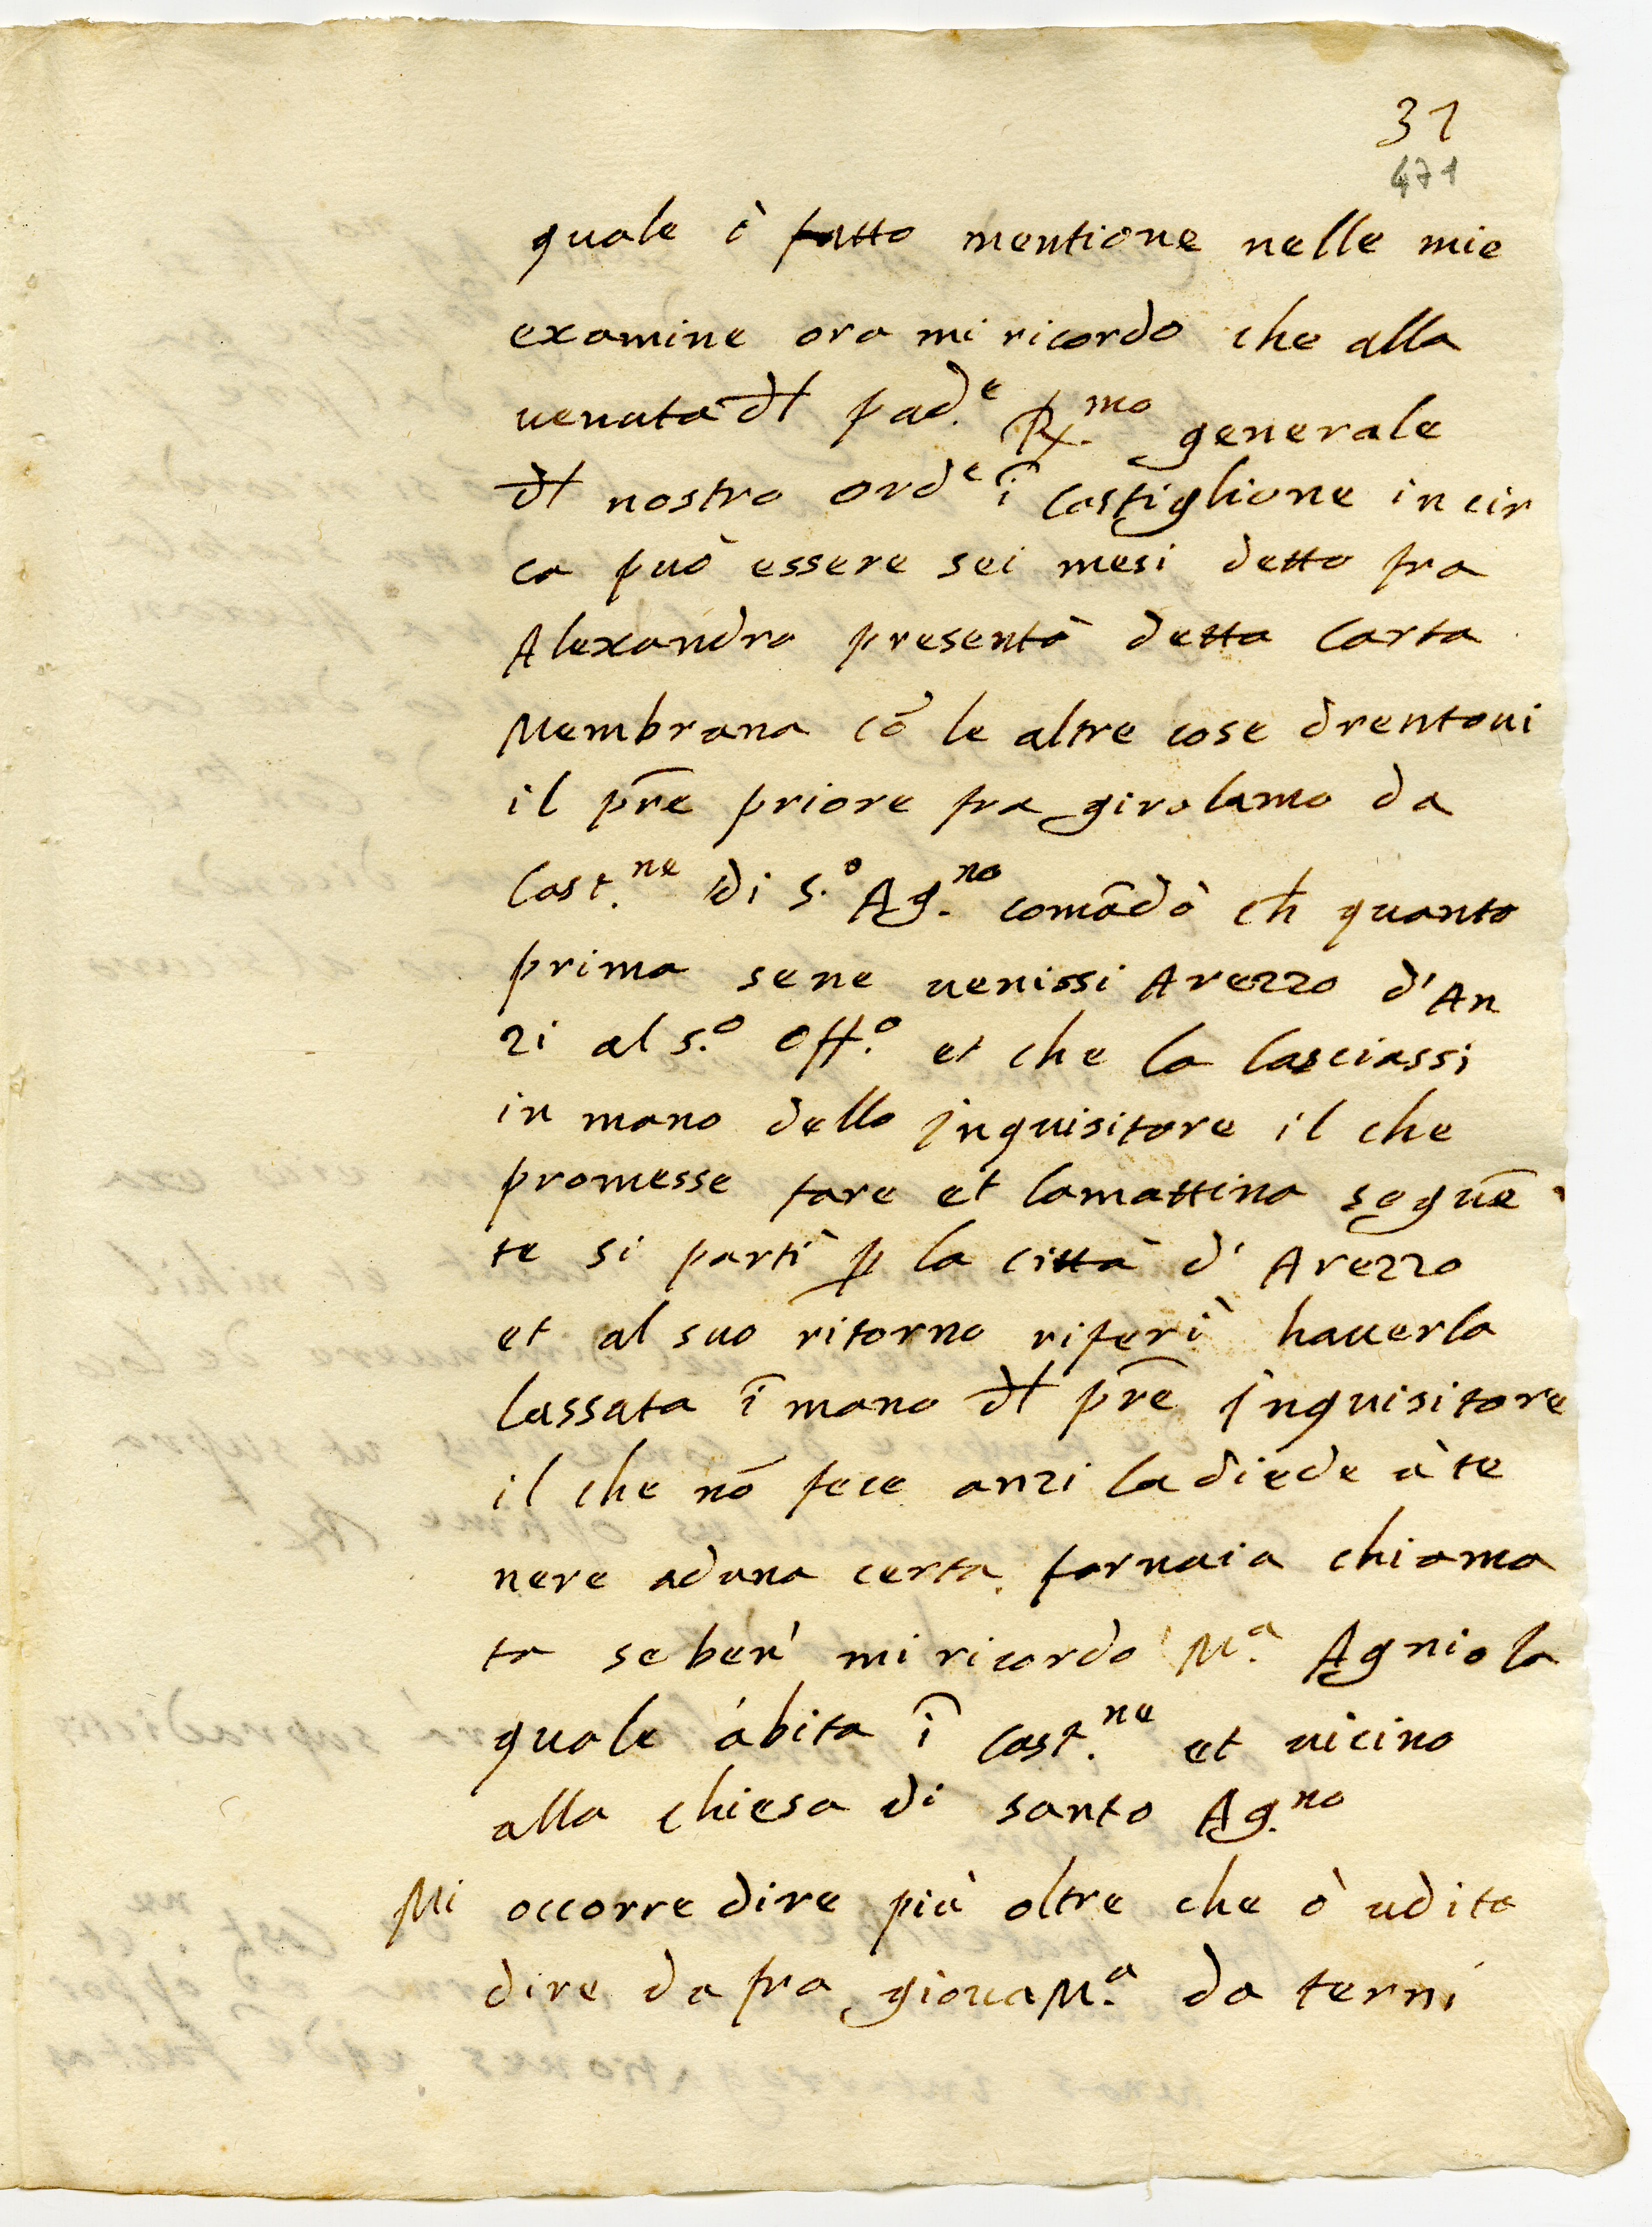 31
471
quale è fatto mentione nelle mie
examine ora mi ricordo che alla
uenuta dl pad.e R.mo generale
dl nostro ord.e ĩ Castiglione in cir
ca può essere sei mesi detto fra
Alexandro presentò detta Carta
Membrana cõ le altre cose drentoui
il prẽ priore fra girolamo da
Cast.ne di S.o Ag.no comãdò ch̃ quanto
prima sene uenissi Arezzo d'An
zi al s.o Off.o et che la lasciassi
in mano dello Inquisitore il che
promesse fare et lamattina seguẽ
te si partì ꝑ la città d' Arezzo
et al suo ritorno riferì hauerla
lassata ĩ mano dl prẽ Inquisitore
il che nõ fece anzi la diede à te
nere aduna certa fornaia chiama
ta se ben' mi ricordo M.a Agniola
quale àbita ĩ Cast.ne et uicino
alla chiesa di santo Ag.no
Mi occorre dire più oltre che ò udito
dire da fra giouaM.a da terni